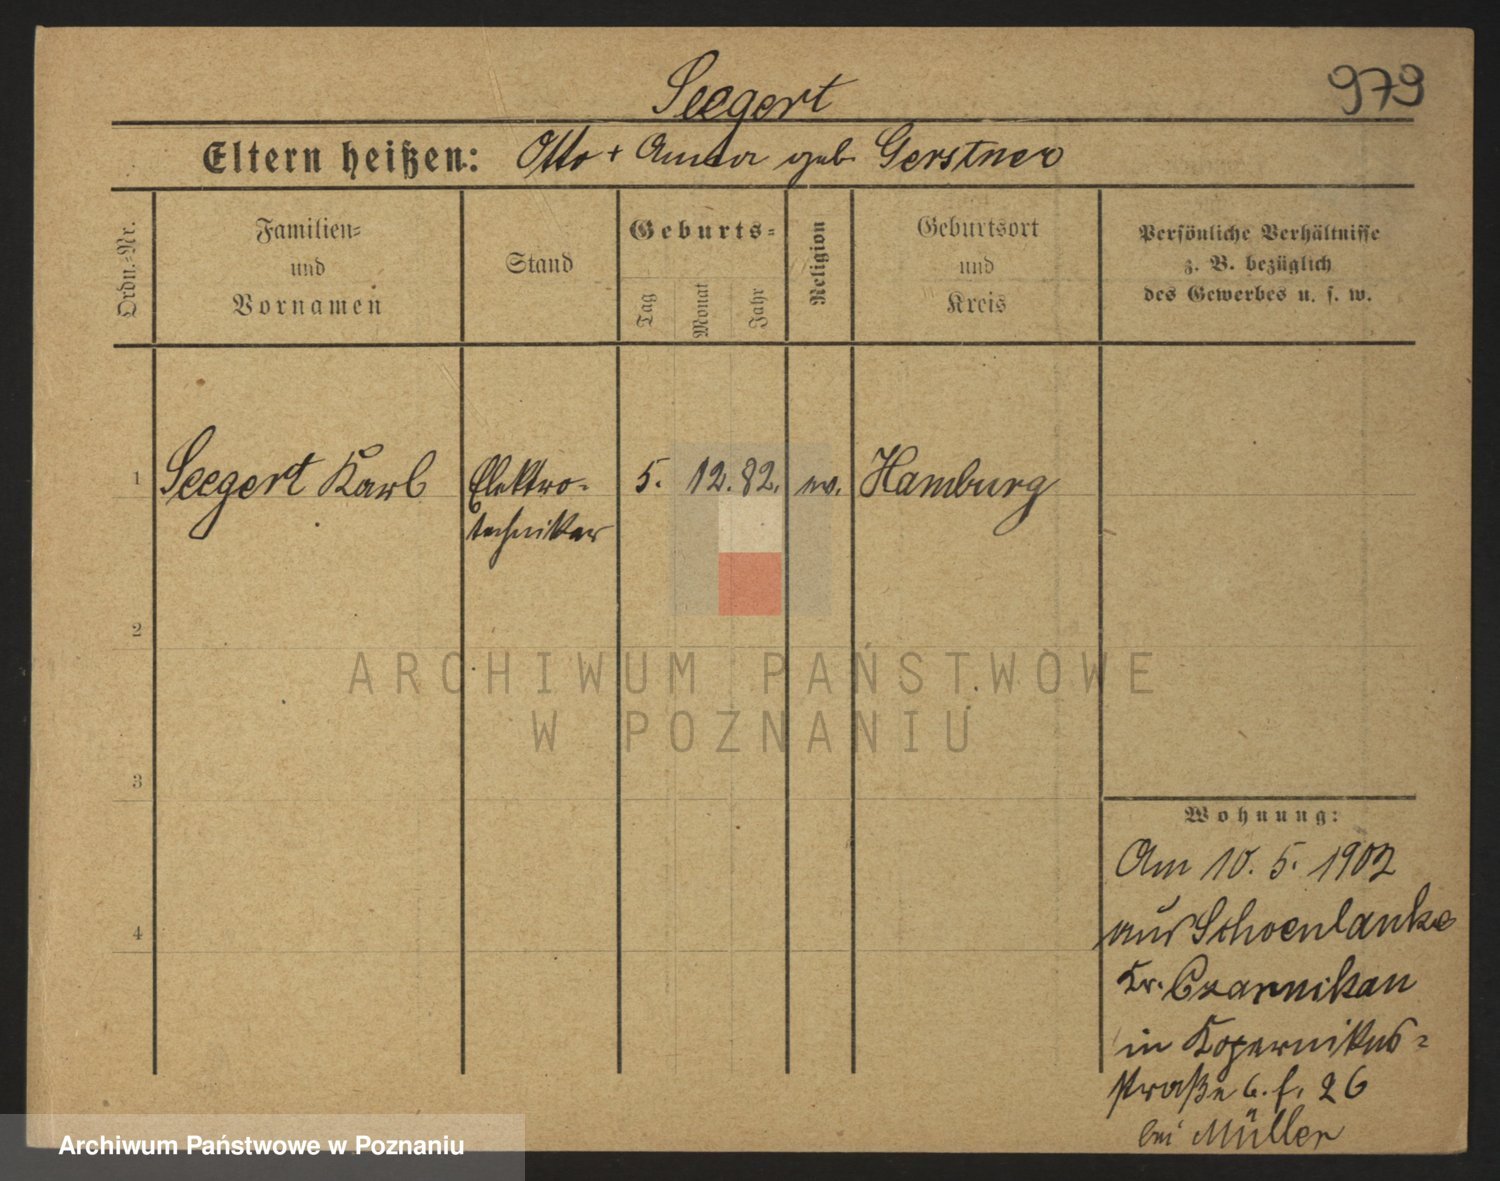 979
Seegert
Eltern heißen: Otto + Anna geb. Gerstner
Ordn.=Nr.
Familien=
und
Vornamen
Stand
Geburts=
Tag
Monat
Jahr
Religion
Geburtsort
und
Kreis
Persönliche Verhältnisse
z. B. bezüglich
des Gewerbes u. s. w.
1 Seegert Karl Elektro= 5. 12. 82. ev. Hamburg
techniker
2
3
4
Wohnung:
Am 10. 5. 1902
aus Schoenlanke
Kr. Czarnikau
in Kopernikus=
straße 6. f. 26
bei Müller
ARCHIWUM PAŃSTWOWE
W POZNANIU
Archiwum Państwowe w Poznaniu